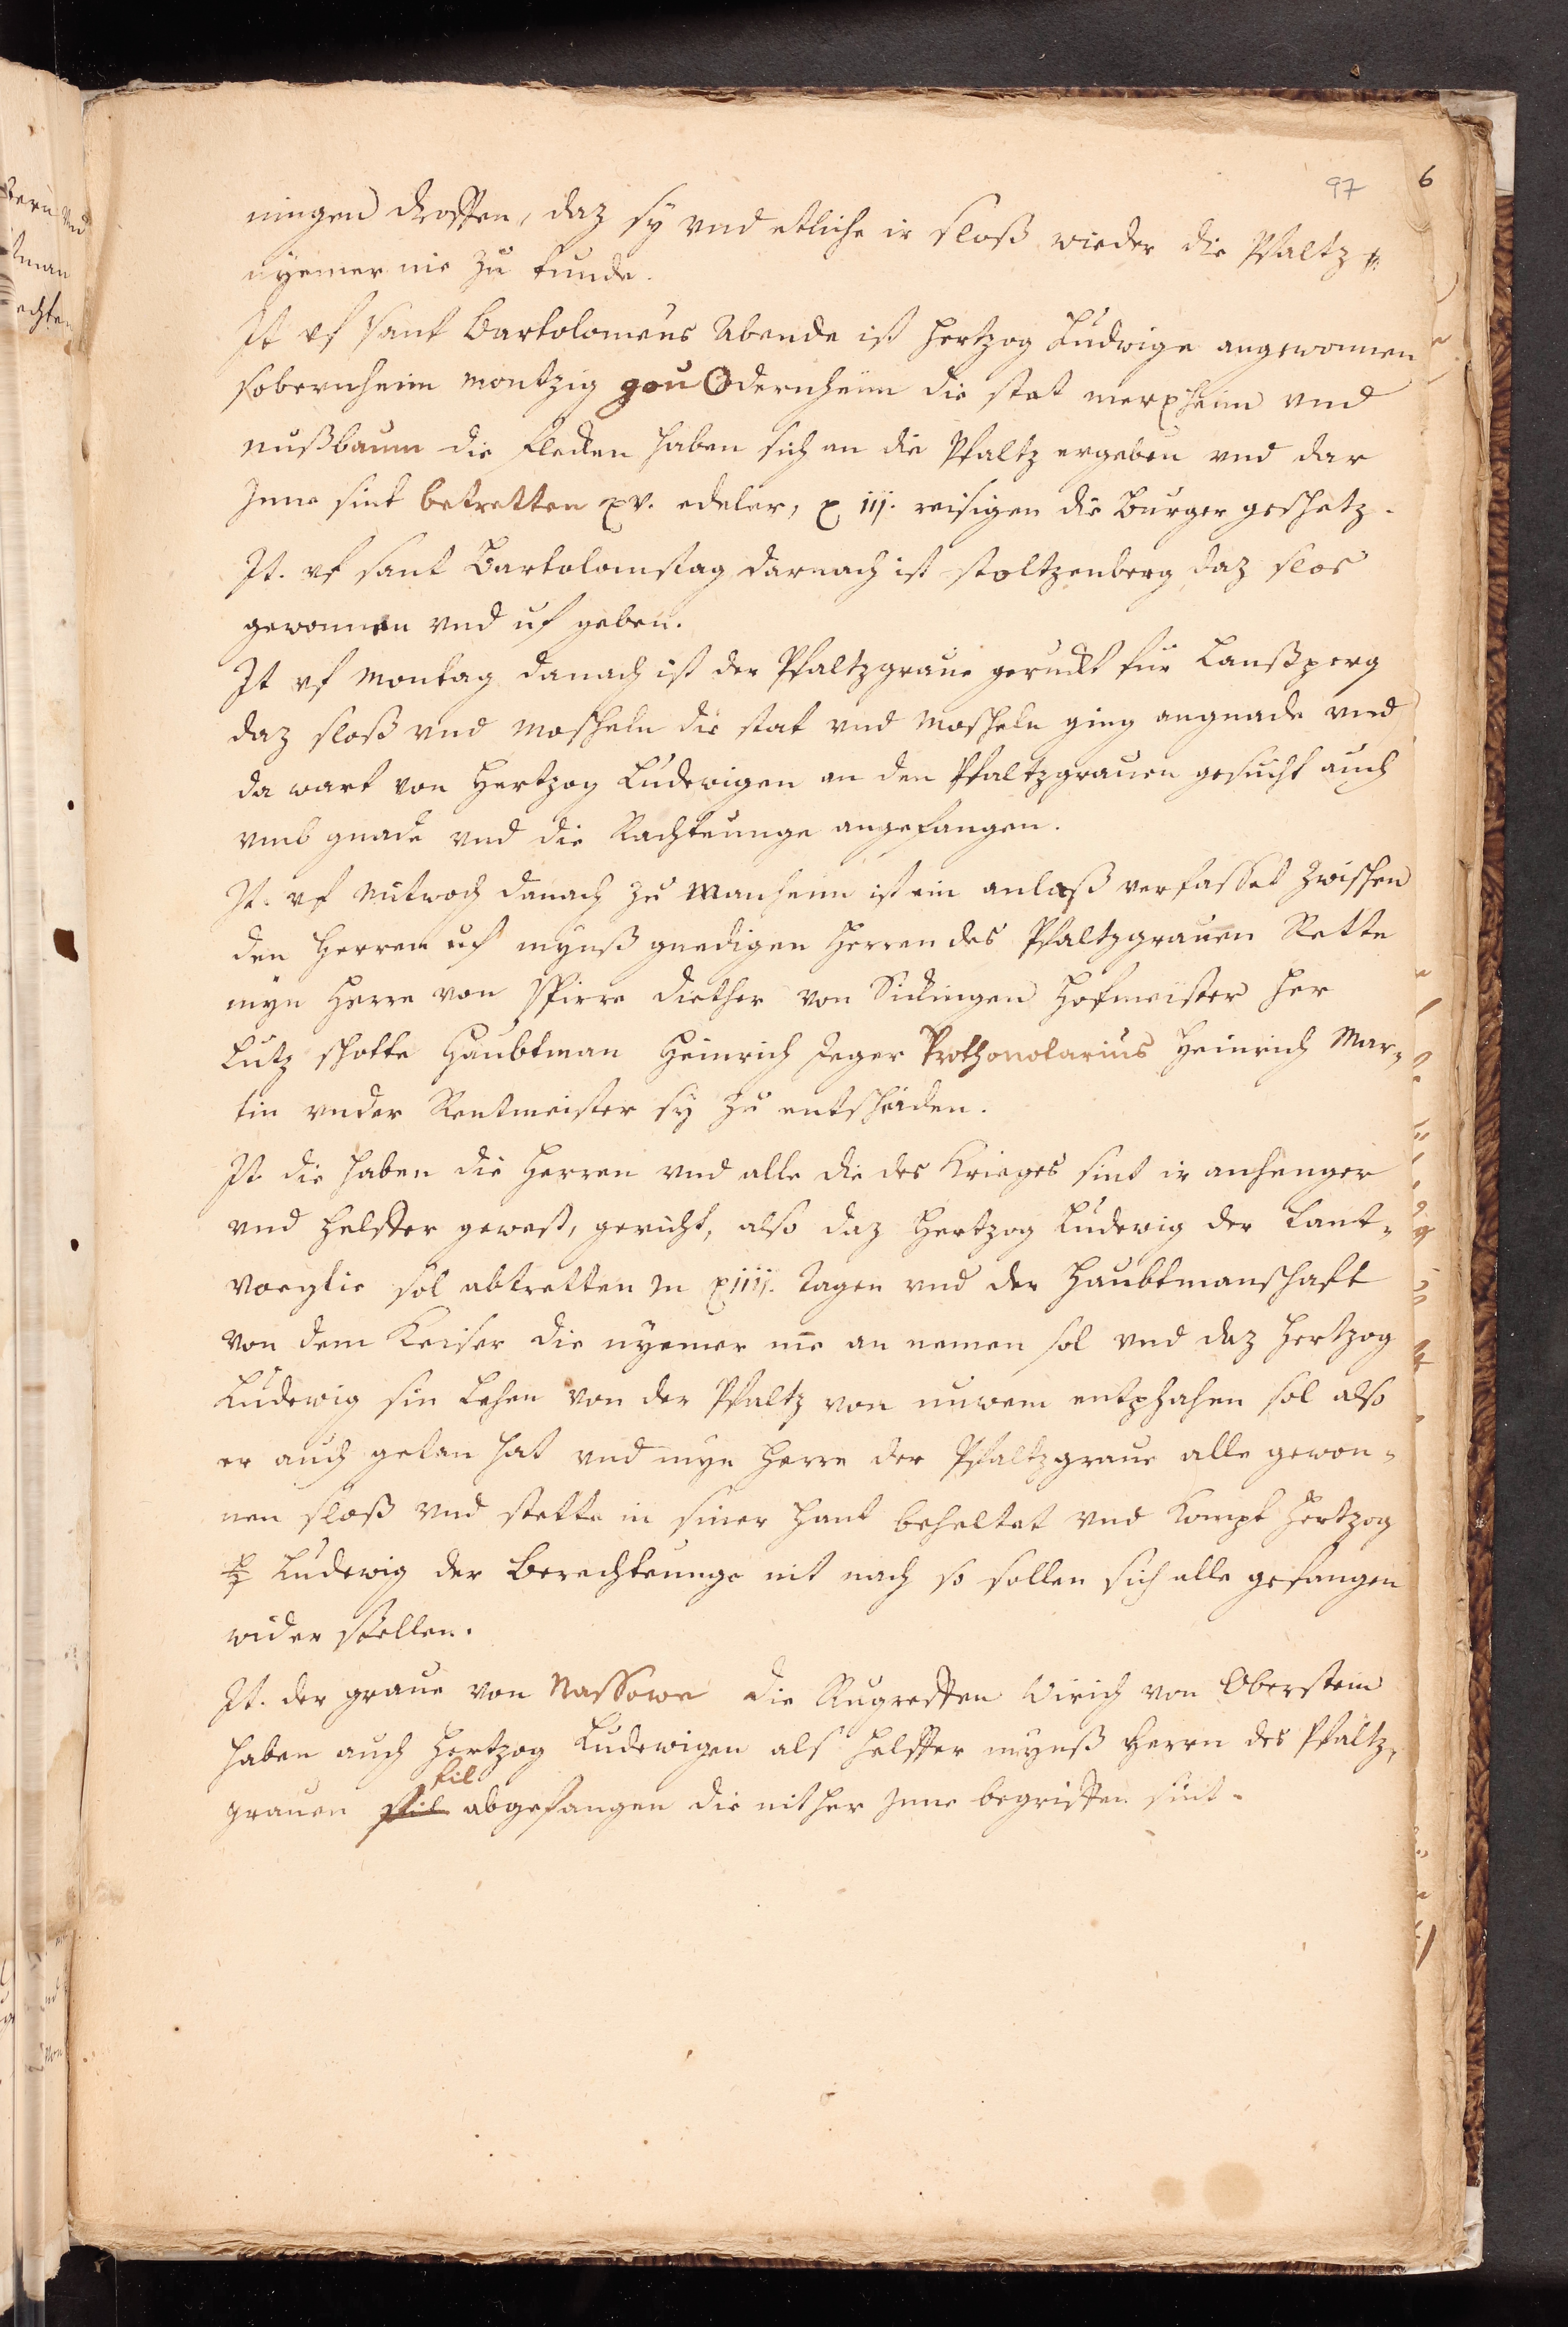 97 6
ningen droffen, daz sy vnd etliche ir sloß wieder die Pfaltz
nyemer me zu kunde.
It vf sant Bartolomeus Abende ist Hertzog Ludwige angewonnen
sobernheim montzig gou Odernheim die stat merxheim vnd
nußbaum die flecken haben sich an die Pfaltz ergeben vnd dar
Jnne sint betretten xv. edeler, x iij. reisigen die Burger geschetz.
It. vf sant Bartolomstag darnach ist stoltzenberg daz slos
gewonnen vnd uf geben.
It vf Montag danach ist der Pfaltzgraue geruckt für Lanßperg
daz sloß vnd Moscheln die stat vnd Moscheln ging angnade vnd
da wart von Hertzog Ludewigen an den Pfaltzgrauen gesucht auch
vmb gnade vnd die Rachtunge angefangen.
It. vf Mitwoch danach zu Manheim ist ein anlaß verfasset zwischen
den Herren uf mynß gnedigen Herren des Pfaltzgrauen Rette
myn Herre von Spirre Diether von Sickingen Hofmeister Her
Lutz schotte Haubtman Heinrich Jeger Prothonotarius Heinrich Mar„
tin vnder Rentmeister sy zu entscheiden.
It die haben die Herren vnd alle die des Krieges sint ir anhenger
vnd Helffer gewest, gericht, also daz Hertzog Ludewig der Lant„
voegtie sol abtretten in xiiij. Tagen vnd der Haubtmanschaft
von dem Keiser die nyemer me an nemen sol vnd daz Hertzog
Ludewig sin Lehen von der Pfaltz von nuwem entphahen sol also
er auch getan hat vnd myn Herre der Pfaltzgraue alle gewon„
nen sloß vnd stette in siner Hant beheltet vnd Kompt Hertzog
Ludewig der Berachtunge nit nach so sollen sich alle gefangen
wider stellen.
It. der graue von Nassowe die Rugreffen Wirich von Oberstein
haben auch Hertzog Ludewigen als Helffer mynß Herrn des Pfaltz„
fil
grauen abgefangen die nit her Jnne begriffen sint.